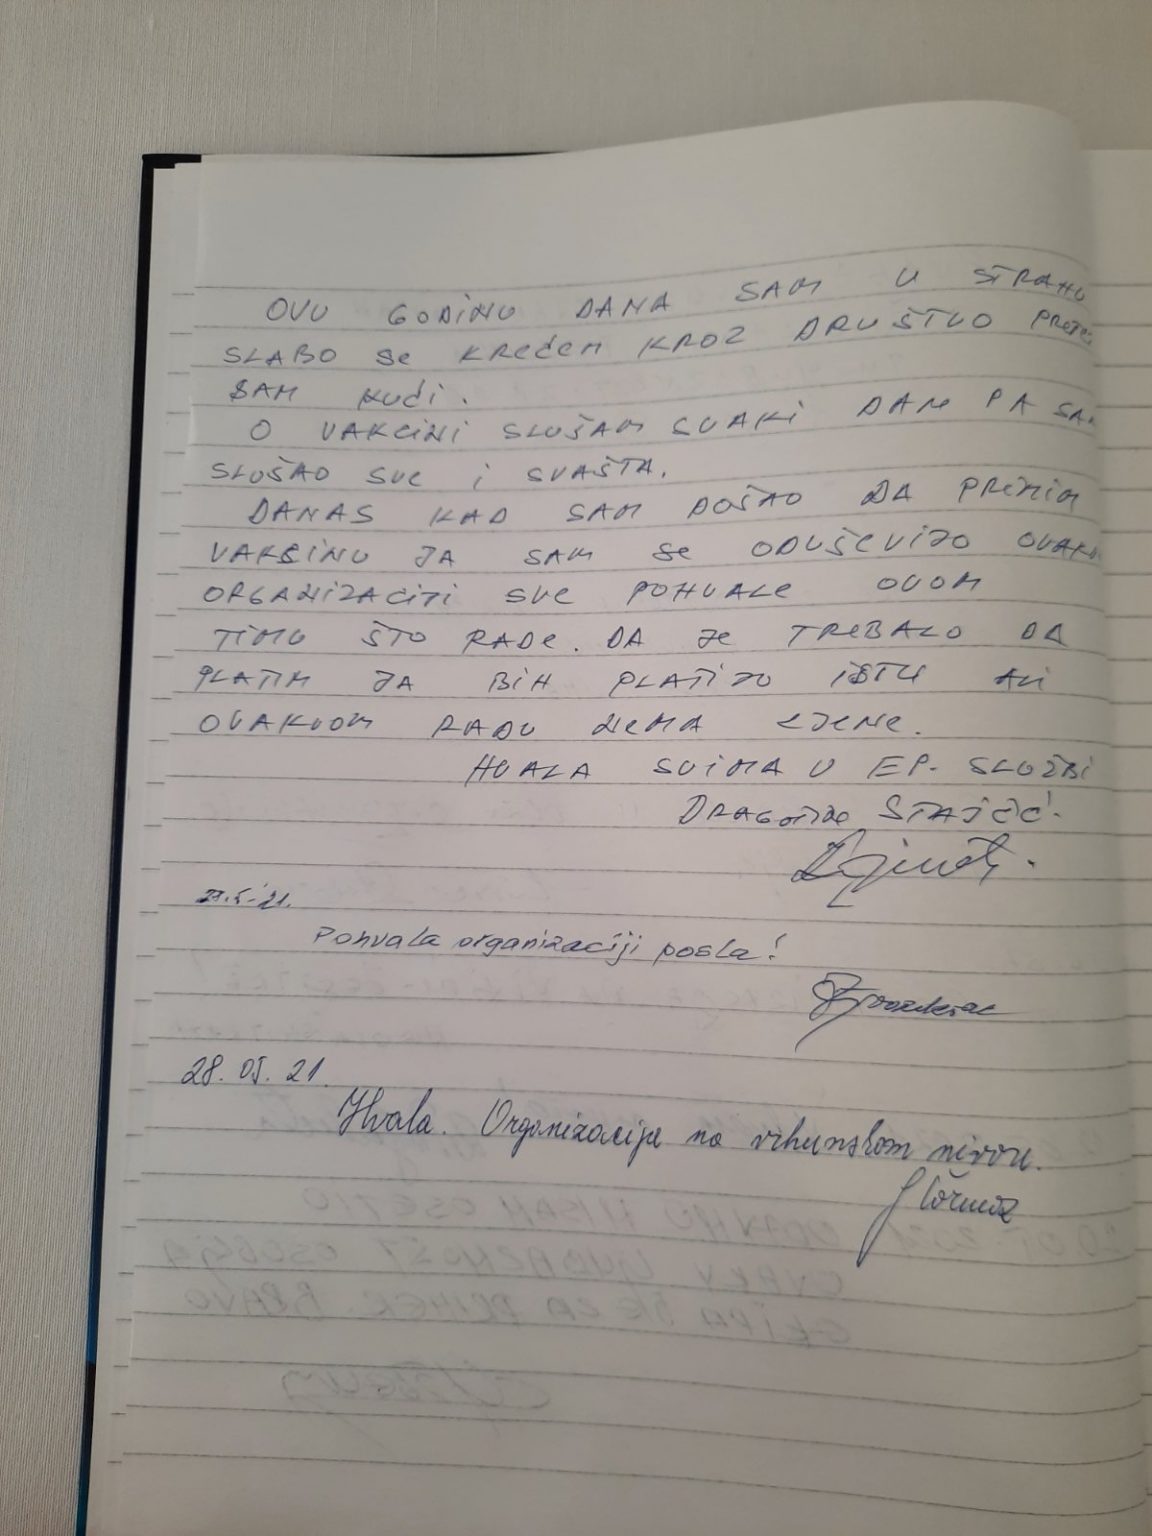 OVU GODINU DANA SAM U STRAHU
SLABO SE KREĆEM KROZ DRUŠTVO
SAM KUĆI.
O VAKCINI SLUŠAM SVAKI DAN PA SAM
SLUŠAO SVE I SVAŠTA.
DANAS KAD SAM DOŠAO DA PRIMIM
VAKCINU JA SAM SE ODUŠEVIJO
ORGANIZACIJI SVE POHVALE OVOM
TIMU ŠTO RADE. DA JE TREBALO DA
PLATIM JA BIH PLATIJO ISTU ALI
OVAKVOM RADU NEMA CJENE.
HVALA SVIMA U EP. SLUŽBI
STAJČIĆ.
27.5.21.
Pohvala organizaciji posla!
28.05.21.
Hvala. Organizacija na vrhunskom nivou.